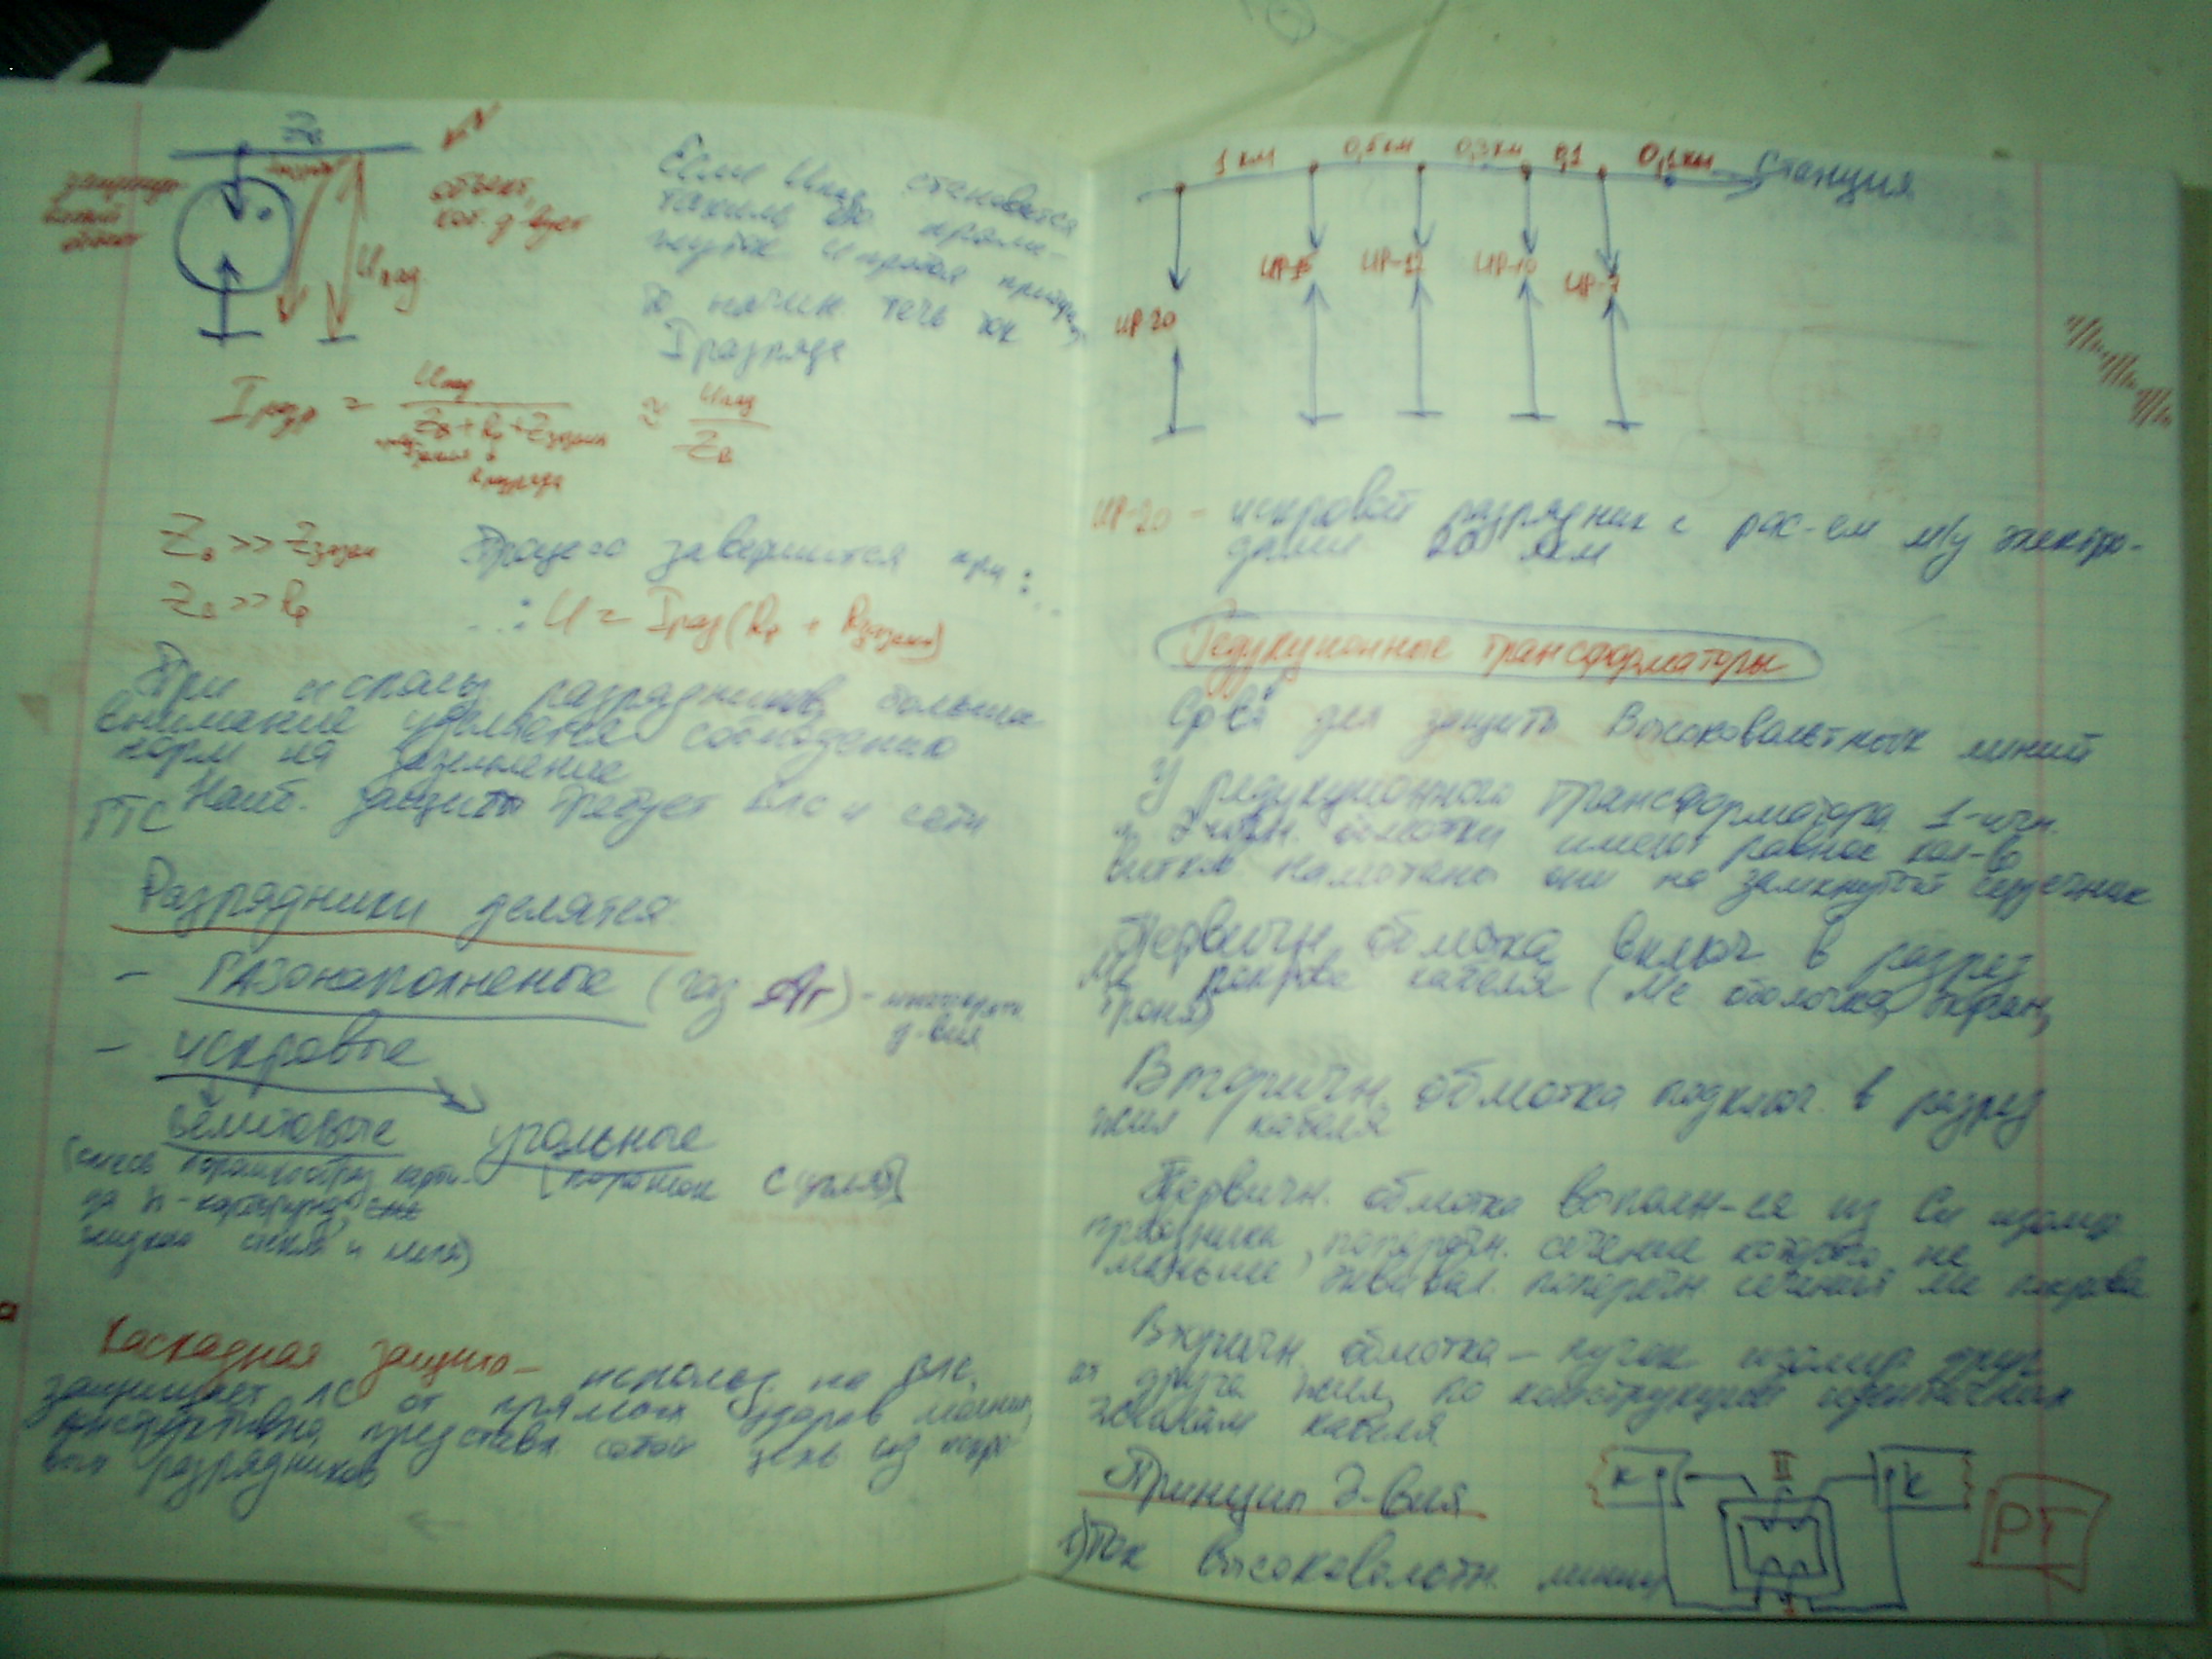 Zв
объект,
кот. д-вует
Uпад
Если Uпад становится
таким что проме-
жуток
то начин. течь ток
Iразряда
Iразр = Uпад / (Zв + Rр + Zзазем) ≈ Uпад / Zв
Zв >> Zзазем
Zв >> Rр
Процесс завершится при:
∴ U = Iраз(Rр + Rзазем)
При использ разрядников больше
внимание уделяется соблюдению
норм на заземление
Наиб. защиты требует ВЛС и сети
ГТС
Разрядники делятся
- газонаполненые (газ Ar) - многократн
д-вия
- искровые
вилитовые угольные
(порошок с углят)
жидкого стекла и мела)
Каскадная защита - использ. на ВЛС,
защищает ЛС от прямых ударов молнии,
конструктивно представл собой цепь из искро
вых разрядников
1 км 0,5 км 0,3 км 0,1 0,1 км Станция
ИР-20 ИР-15 ИР-12 ИР-10 ИР-7
ИР-20 - искровой разрядник с рас-ем м/у электро-
дами 20 мм
Редукционные трансформаторы
Ср-ва для защиты высоковольтных линий
У редукционного трансформатора 1-ичн.
и 2-ичн. обмотки имеют равное кол-во
витков намотаны они на замкнутый сердечник
Первичн. обмотка включ в разрез
Ме покрова кабеля (Ме оболочка, экран,
броня)
Вторичн. обмотка подключ. в разрез
жил кабеля
Первичн. обмотка выполн-ся из Cu изолир
проводника, поперечн. сечение которого не
меньше эквивал. поперечн сечений Ме покрова
Вторичн. обмотка - пучок изолир друг
от друга жил, по конструкции идентичных
жилам кабеля
Принцип д-вия
1) Ток высоковольтн. линии
К II К
I
РТ